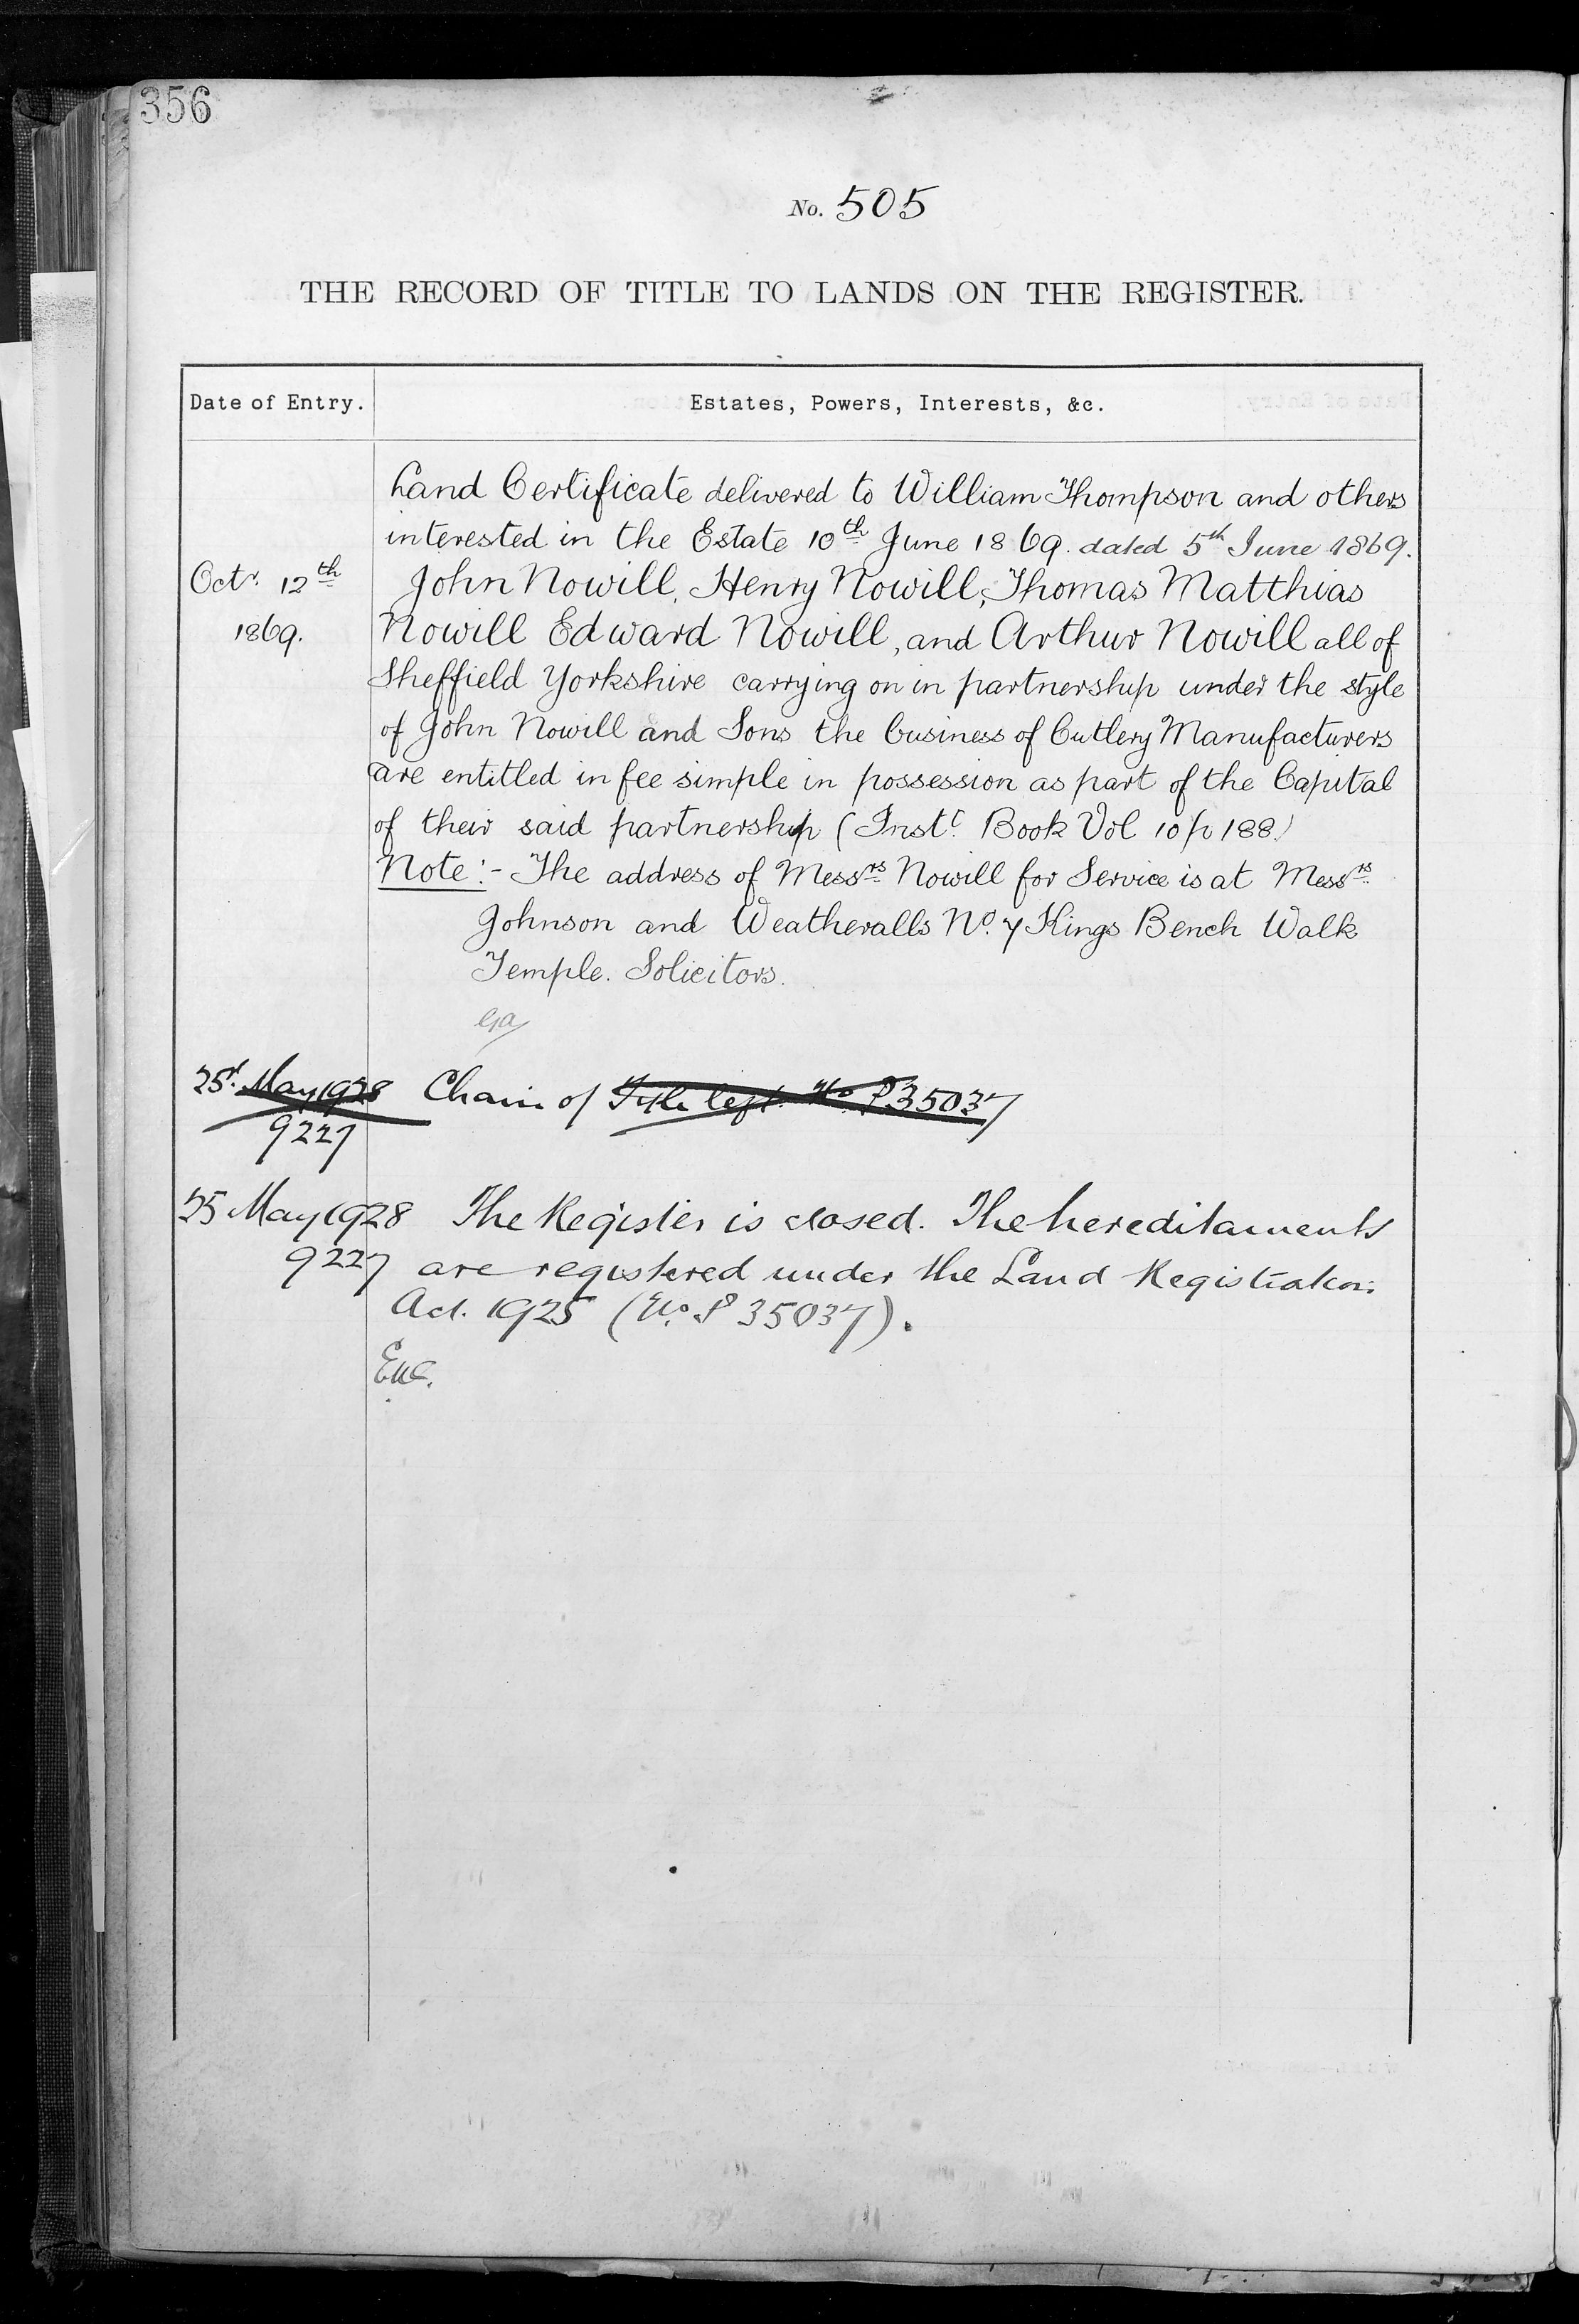 356
No. 505
THE RECORD OF TITLE TO LANDS ON THE REGISTER.
Date of Entry. Estates, Powers, Interests, &c.
Land Certificate delivered to William Thompson and others
interested in the Estate 10th June 1869. dated 5th June 1869.
Octr. 12th John Nowill, Henry Nowill, Thomas Matthias
1869. Nowill Edward Nowill, and Arthur Nowill all of
Sheffield Yorkshire carrying on in partnership under the style
of John Nowill and Sons the business of Cutlery Manufacturers
are entitled in fee simple in possession as part of the Capital
of their said partnership (Instt. Book Vol 10 p 188.)
Note:- The address of Messrs Nowill for Service is at Messrs
Johnson and Weatheralls No. 7 Kings Bench Walk
Temple. Solicitors.
25 May 1928 Chain of Title left No. P35037
9227
25 May 1928 The Register is closed. The hereditaments
9227 are registered under the Land Registration
Act. 1925 (No. P 35037).